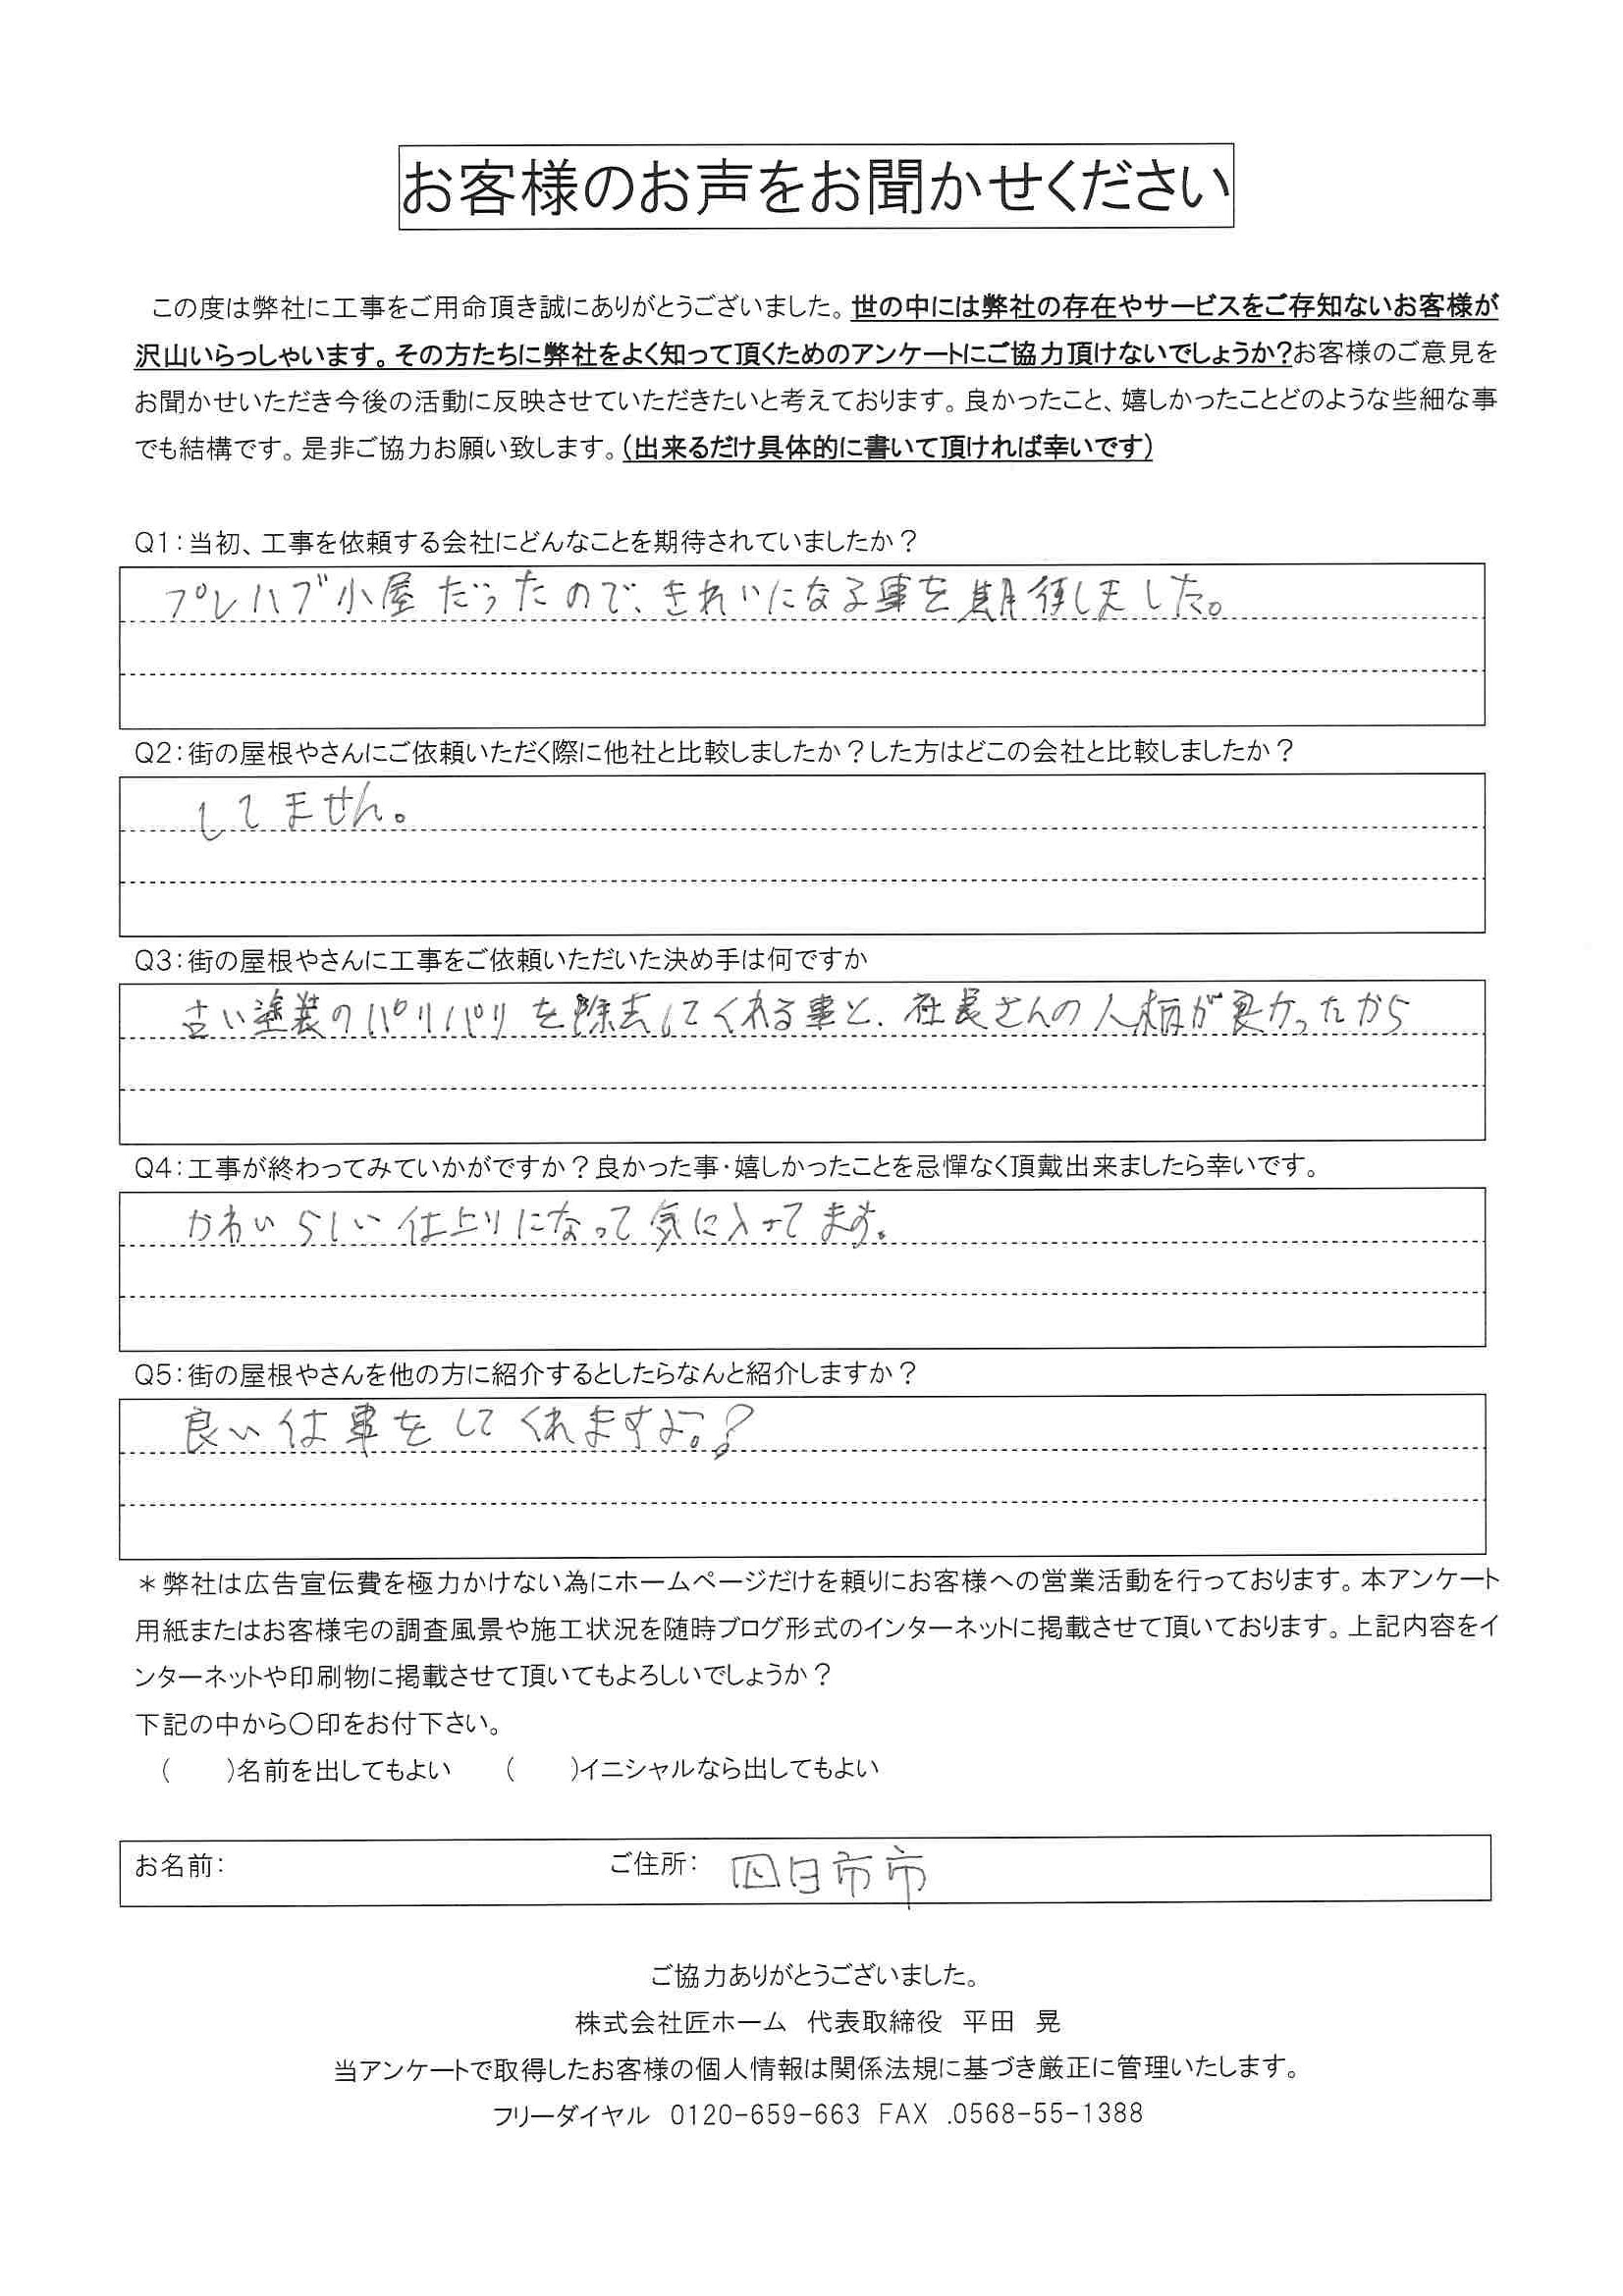 お客様のお声をお聞かせください
この度は弊社に工事をご用命頂き誠にありがとうございました。世の中には弊社の存在やサービスをご存知ないお客様が
沢山いらっしゃいます。その方たちに弊社をよく知って頂くためのアンケートにご協力頂けないでしょうか?お客様のご意見を
お聞かせいただき今後の活動に反映させていただきたいと考えております。良かったこと、嬉しかったことどのような些細な事
でも結構です。是非ご協力お願い致します。(出来るだけ具体的に書いて頂ければ幸いです)
Q1:当初、工事を依頼する会社にどんなことを期待されていましたか?
プレハブ小屋だったので、きれいになる事を期待しました。
Q2:街の屋根やさんにご依頼いただく際に他社と比較しましたか?した方はどこの会社と比較しましたか?
してません。
Q3:街の屋根やさんに工事をご依頼いただいた決め手は何ですか
古い塗装のパリパリを除去してくれる事と、社長さんの人柄が良かったから
Q4:工事が終わってみていかがですか?良かった事・嬉しかったことを忌憚なく頂戴出来ましたら幸いです。
かわいらしい仕上りになって気に入ってます。
Q5:街の屋根やさんを他の方に紹介するとしたらなんと紹介しますか?
良い仕事をしてくれますよ。?
*弊社は広告宣伝費を極力かけない為にホームページだけを頼りにお客様への営業活動を行っております。本アンケート
用紙またはお客様宅の調査風景や施工状況を随時ブログ形式のインターネットに掲載させて頂いております。上記内容をイ
ンターネットや印刷物に掲載させて頂いてもよろしいでしょうか?
下記の中から〇印をお付下さい。
(　　)名前を出してもよい　(　　)イニシャルなら出してもよい
お名前:　ご住所: 四日市市
ご協力ありがとうございました。
株式会社匠ホーム 代表取締役 平田 晃
当アンケートで取得したお客様の個人情報は関係法規に基づき厳正に管理いたします。
フリーダイヤル 0120-659-663 FAX .0568-55-1388